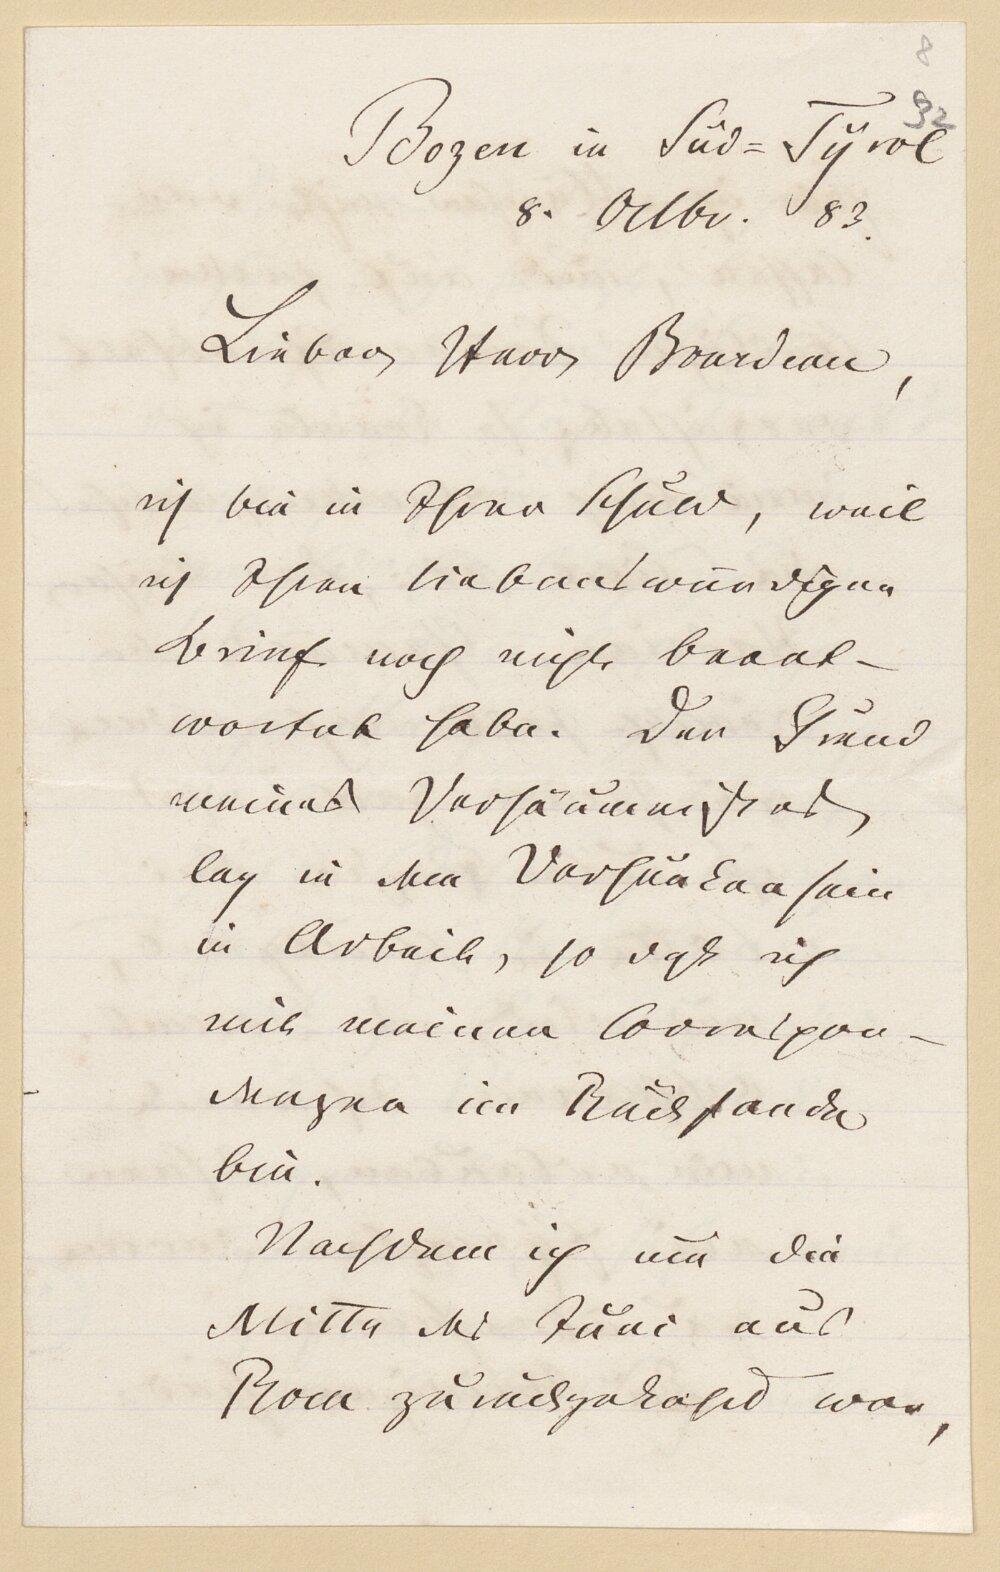 8
32
Bozen in Süd=Tÿrol
8. Octbr. 83.
Lieber Herr Bourdeau,
ich bin in Ihrer Schuld, weil
ich Ihren liebenswürdigen
Brief noch nicht beant-
wortet habe. Der Grund
meines Versäumnisses
lag in dem Versunkensein
in Arbeit, so daß ich
mit meinen Correspon-
denzen im Rückstande
bin.
Nachdem ich um die
Mitte des Juni aus
Rom zurückgekehrt war,